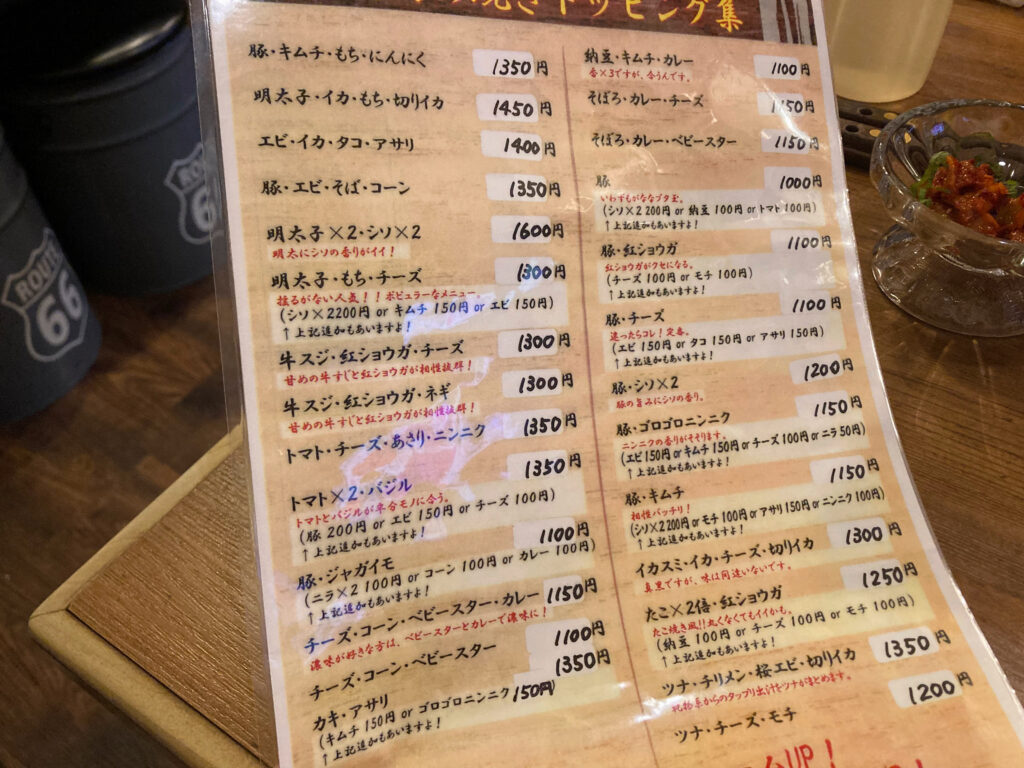 焼きトッピング集
豚・キムチ・もち・にんにく 1350円
明太子・イカ・もち・切りイカ 1450円
エビ・イカ・タコ・アサリ 1400円
豚・エビ・そば・コーン 1350円
明太子×2・シソ×2 1600円
明太にシソの香りがイイ!
明太子・もち・チーズ 1300円
揺るがない人気!!ポピュラーなメニュー。
(シソ×2200円 or キムチ 150円 or エビ 150円)
↑上記追加もあいますよ!
牛スジ・紅ショウガ・チーズ 1300円
甘めの牛すじと紅ショウガが相性抜群!
牛スジ・紅ショウガ・ネギ 1300円
甘めの牛すじと紅ショウガが相性抜群!
トマト・チーズ・あさり・ニンニク 1350円
トマト×2・バジル 1350円
トマトとバジルが粉モノに合う。
(豚 200円 or エビ 150円 or チーズ 100円)
↑上記追加もあいますよ!
豚・ジャガイモ 1100円
(ニラ×2 100円 or コーン 100円 or カレー 100円)
↑上記追加もあいますよ!
チーズ・コーン・ベビースター・カレー 1150円
濃味が好きな方は、ベビースターとカレーで濃味に!
チーズ・コーン・ベビースター 1100円
カキ・アサリ 1350円
(キムチ 150円 or ゴロゴロニンニク 150円)
↑上記追加もあいますよ!
納豆・キムチ・カレー 1100円
香×3ですが、合うんです。
そぼろ・カレー・チーズ 1150円
そぼろ・カレー・ベビースター 1150円
豚 1000円
いわずもがなブタ玉。
(シソ×2 200円 or 納豆 100円 or トマト 100円)
↑上記追加もあいますよ!
豚・紅ショウガ 1100円
紅ショウガがクセになる。
(チーズ 100円 or モチ 100円)
↑上記追加もあいますよ!
豚・チーズ 1100円
迷ったらコレ!定番。
(エビ 150円 or タコ 150円 or アサリ 150円)
↑上記追加もあいますよ!
豚・シソ×2 1200円
豚の旨みにシソの香り。
豚・ゴロゴロニンニク 1150円
ニンニクの香りがそそります。
(エビ150円 or キムチ150円 or チーズ100円 or ニラ50円)
↑上記追加もあいますよ!
豚・キムチ 1150円
相性バッチリ!
(シソ×2 200円 or モチ 100円 or アサリ 150円 or ニンニク 100円)
↑上記追加もあいますよ!
イカスミ・イカ・チーズ・切りイカ 1300円
真黒ですが、味は間違いないです。
たこ×2倍・紅ショウガ 1250円
たこ焼き風!!丸くなくてもイイかも。
(納豆 100円 or チーズ 100円 or モチ 100円)
↑上記追加もあいますよ!
ツナ・チリメン・桜エビ・切りイカ 1350円
からのタップリ出汁をツナがまとめます。
ツナ・チーズ・モチ 1200円
UP!
ROUTE
66
66